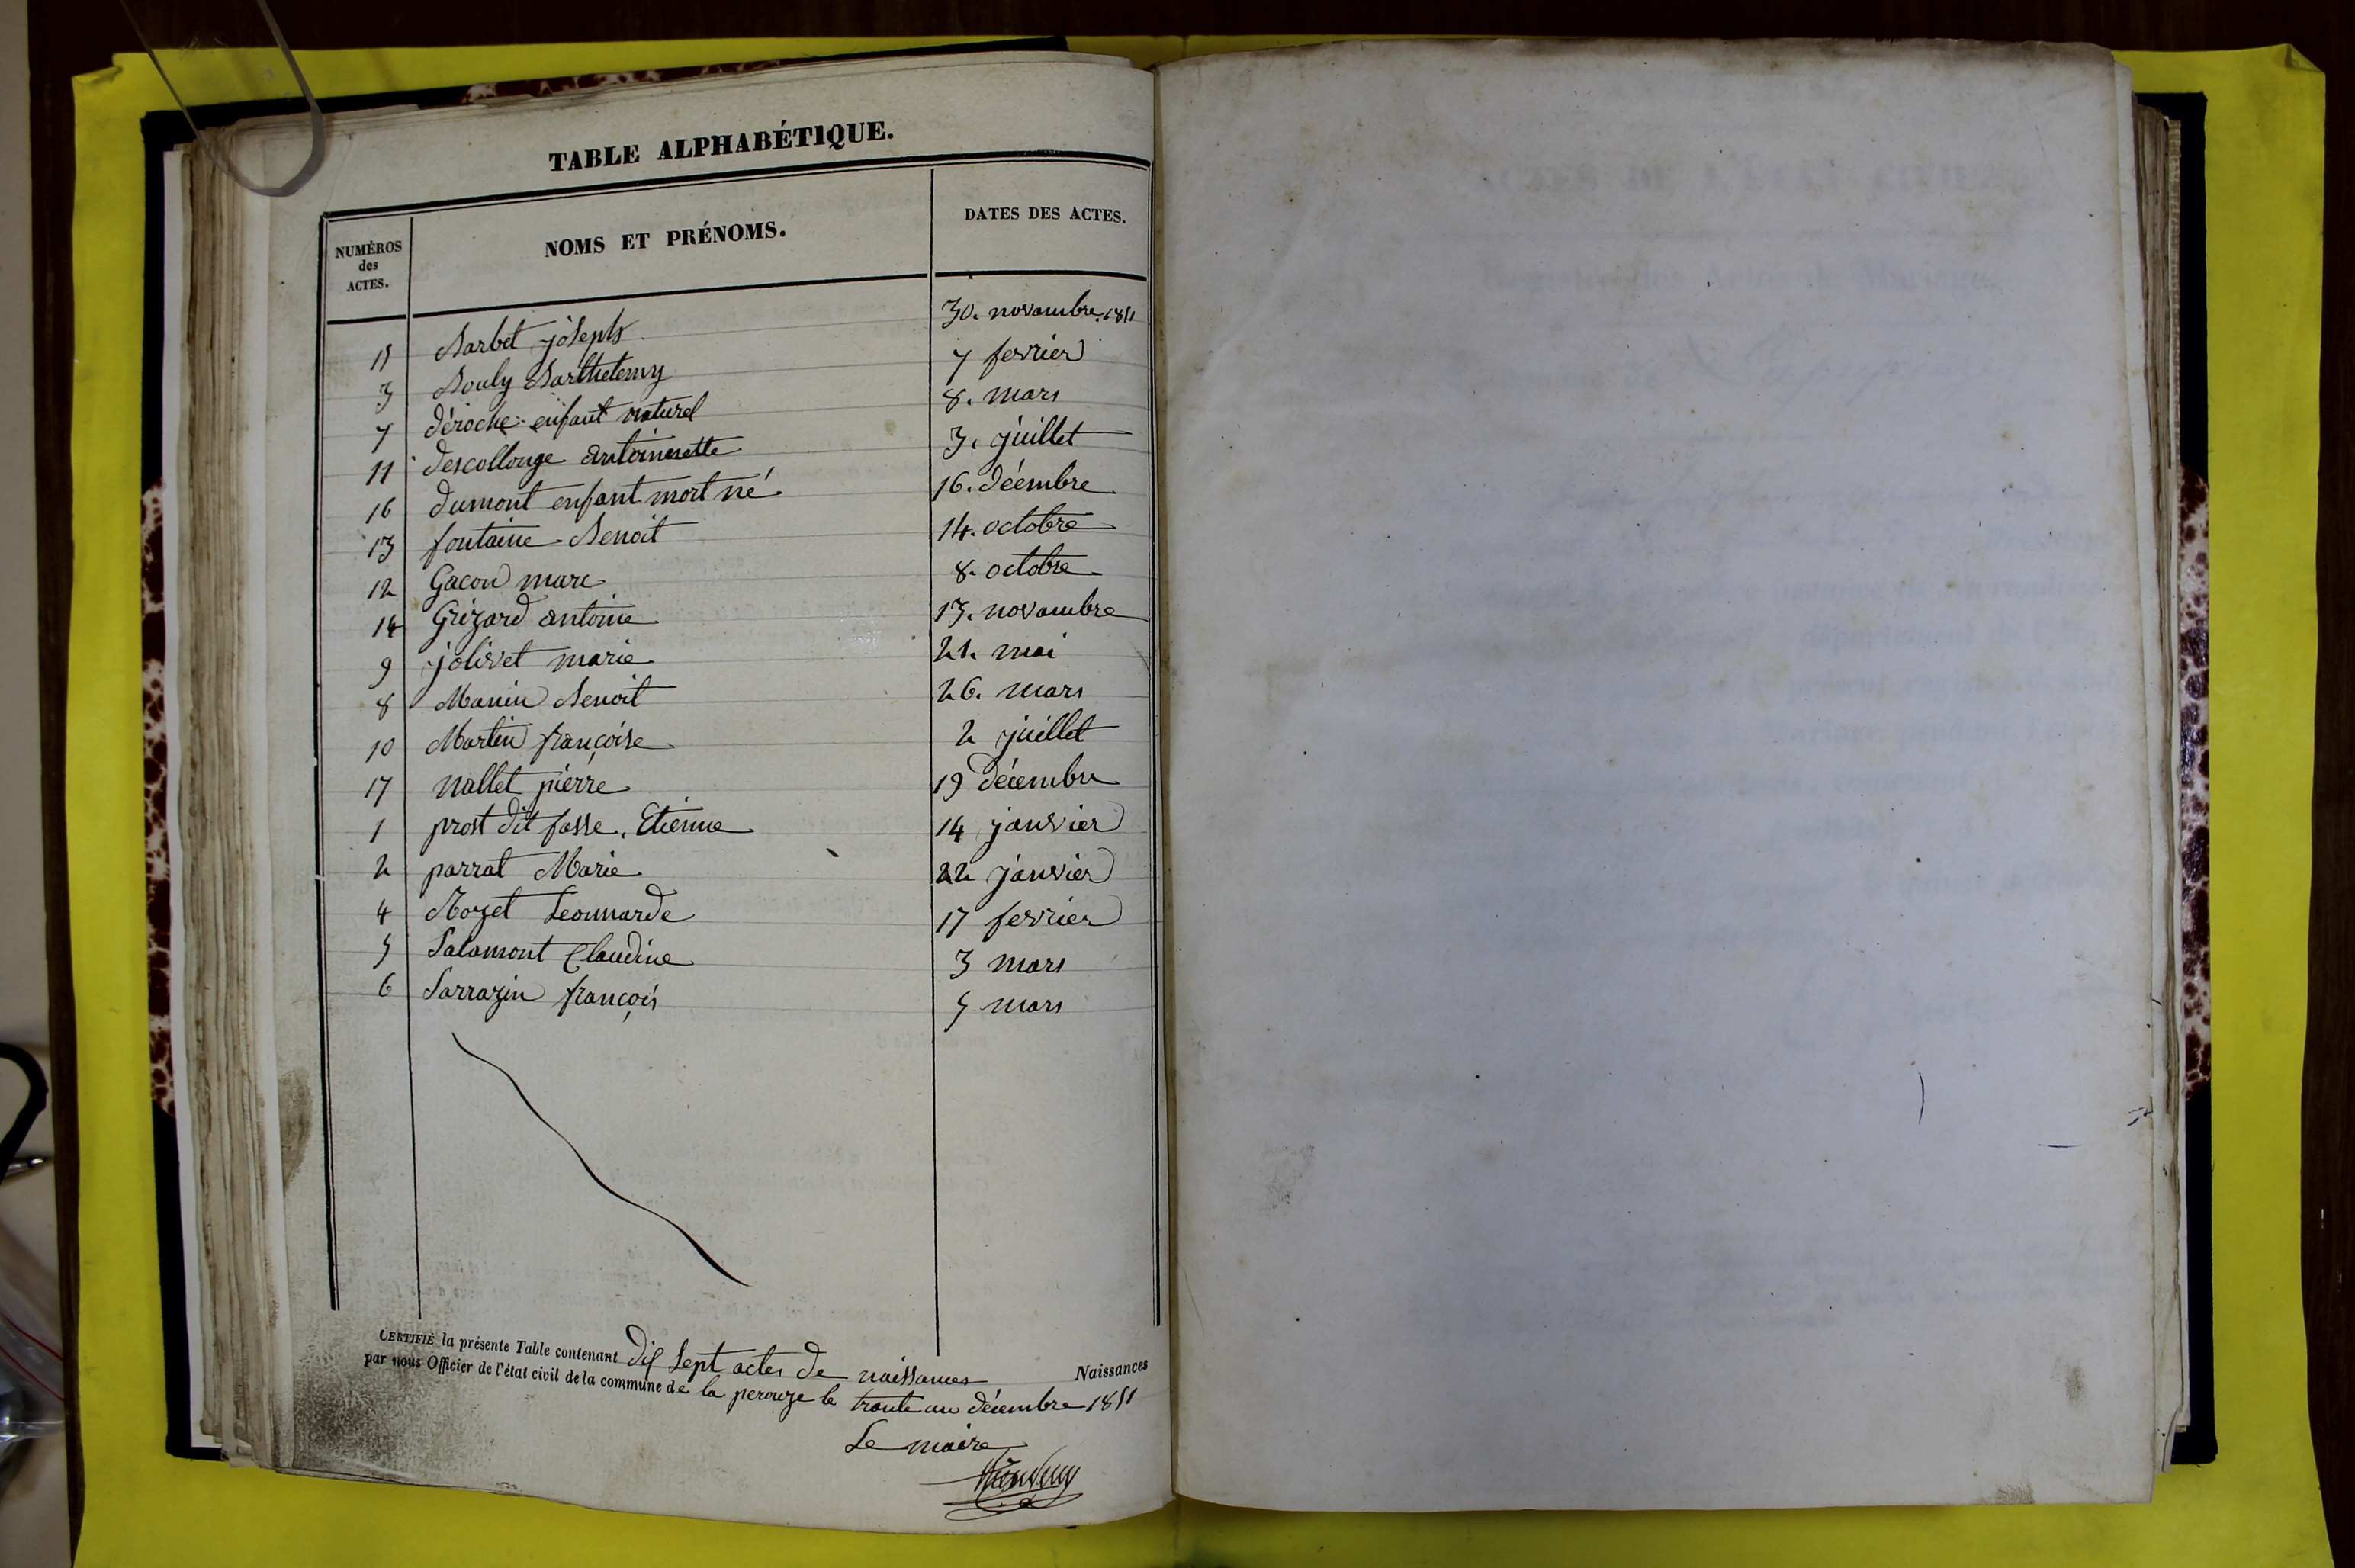 TABLE ALPHABÉTIQUE.
NUMÉROS des ACTES. NOMS ET PRÉNOMS. DATES DES ACTES.
15 Barbet joseph 30. novambre 1851
3 Bouly Barthelemy 7 fevrier
7 déroche enfant naturel 8. mars
11 descollonge antoinesette 3. juillet
16 dumont enfant mort né 16. déembre
13 fontaine Benoit 14. octobre
12 Gacon marc 8. octobre
14 Grizard antoine 13. novambre
9 jolivet marie 21. mai
8 Manin Benoit 26. mars
10 Martin françoise 2 juillet
17 nallet pierre 19 décembre
1 prost dit fasse, Etienne 14 janvier
2 parrat Marie 22 janvier
4 Rozet Leonnarde 17 fevrier
5 Salamont Claudine 3 mars
6 Sarrazin françois 5 mars
CERTIFIÉ la présente Table contenant dix sept actes de naissances Naissances
par nous Officier de l'état civil de la commune de la perouze le trante un décembre 1851
Le maire